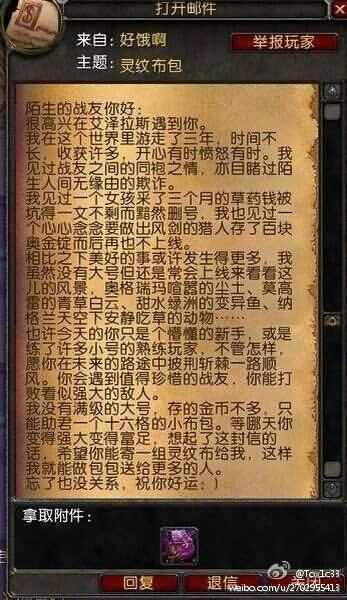 打开邮件
来自：好饿啊
举报玩家
主题：灵纹布包
陌生的战友你好：
很高兴在艾泽拉斯遇到你。
我在这个世界里游走了三年，时间不
长，收获许多，开心有时愤怒有时。我
见过战友之间的同袍之情，亦目睹过陌
生人间无缘由的欺诈。
我见过一个女孩采了三个月的草药钱被
坑得一文不剩而黯然删号，我也见过一
个心心念念要做出风剑的猎人存了百块
奥金锭而后再也不上线。
相比之下美好的事或许发生得更多，我
虽然没有大号但还是常会上线来看看这
儿的风景，奥格瑞玛喧嚣的尘土、莫高
雷的青草白云、甜水绿洲的变异鱼、纳
格兰天空下安静吃草的动物……
也许今天的你只是个懵懂的新手，或是
练了许多小号的熟练玩家，不管怎样，
愿你在未来的路途中披荆斩棘一路顺
风。你会遇到值得珍惜的战友，你能打
败看似强大的敌人。
我没有满级的大号，存的金币不多，只
能助君一个十六格的小布包。等哪天你
变得强大变得富足，想起了这封信的
话，希望你能寄一组灵纹布给我，这样
我就能做包包送给更多的人。
忘了也没关系，祝你好运：）
拿取附件：
回复
退信
关闭
weibo.com/u/2702955413